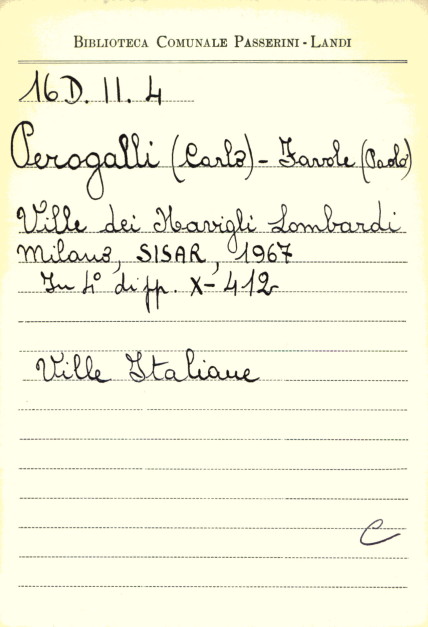 BIBLIOTECA COMUNALE PASSERINI-LANDI
16D. II. 4
Perogalli (Carlo) - Favole (Paolo)
Ville dei Navigli Lombardi
Milano, SISAR, 1967
In 4° di pp. X-412
Ville Italiane
C